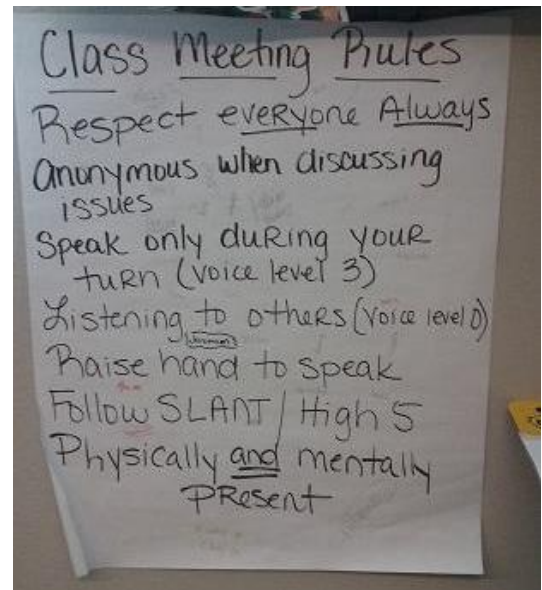 Class Meeting Rules
Respect everyone Always
Anonymous when discussing
issues
Speak only during your
turn (voice level 3)
Listening to others (voice level 0)
Raise hand to speak
Follow SLANT / High 5
Physically and mentally
present